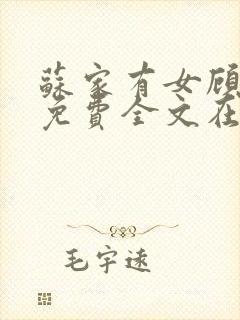 蘇家有女顾
免費全文在
毛宇遠